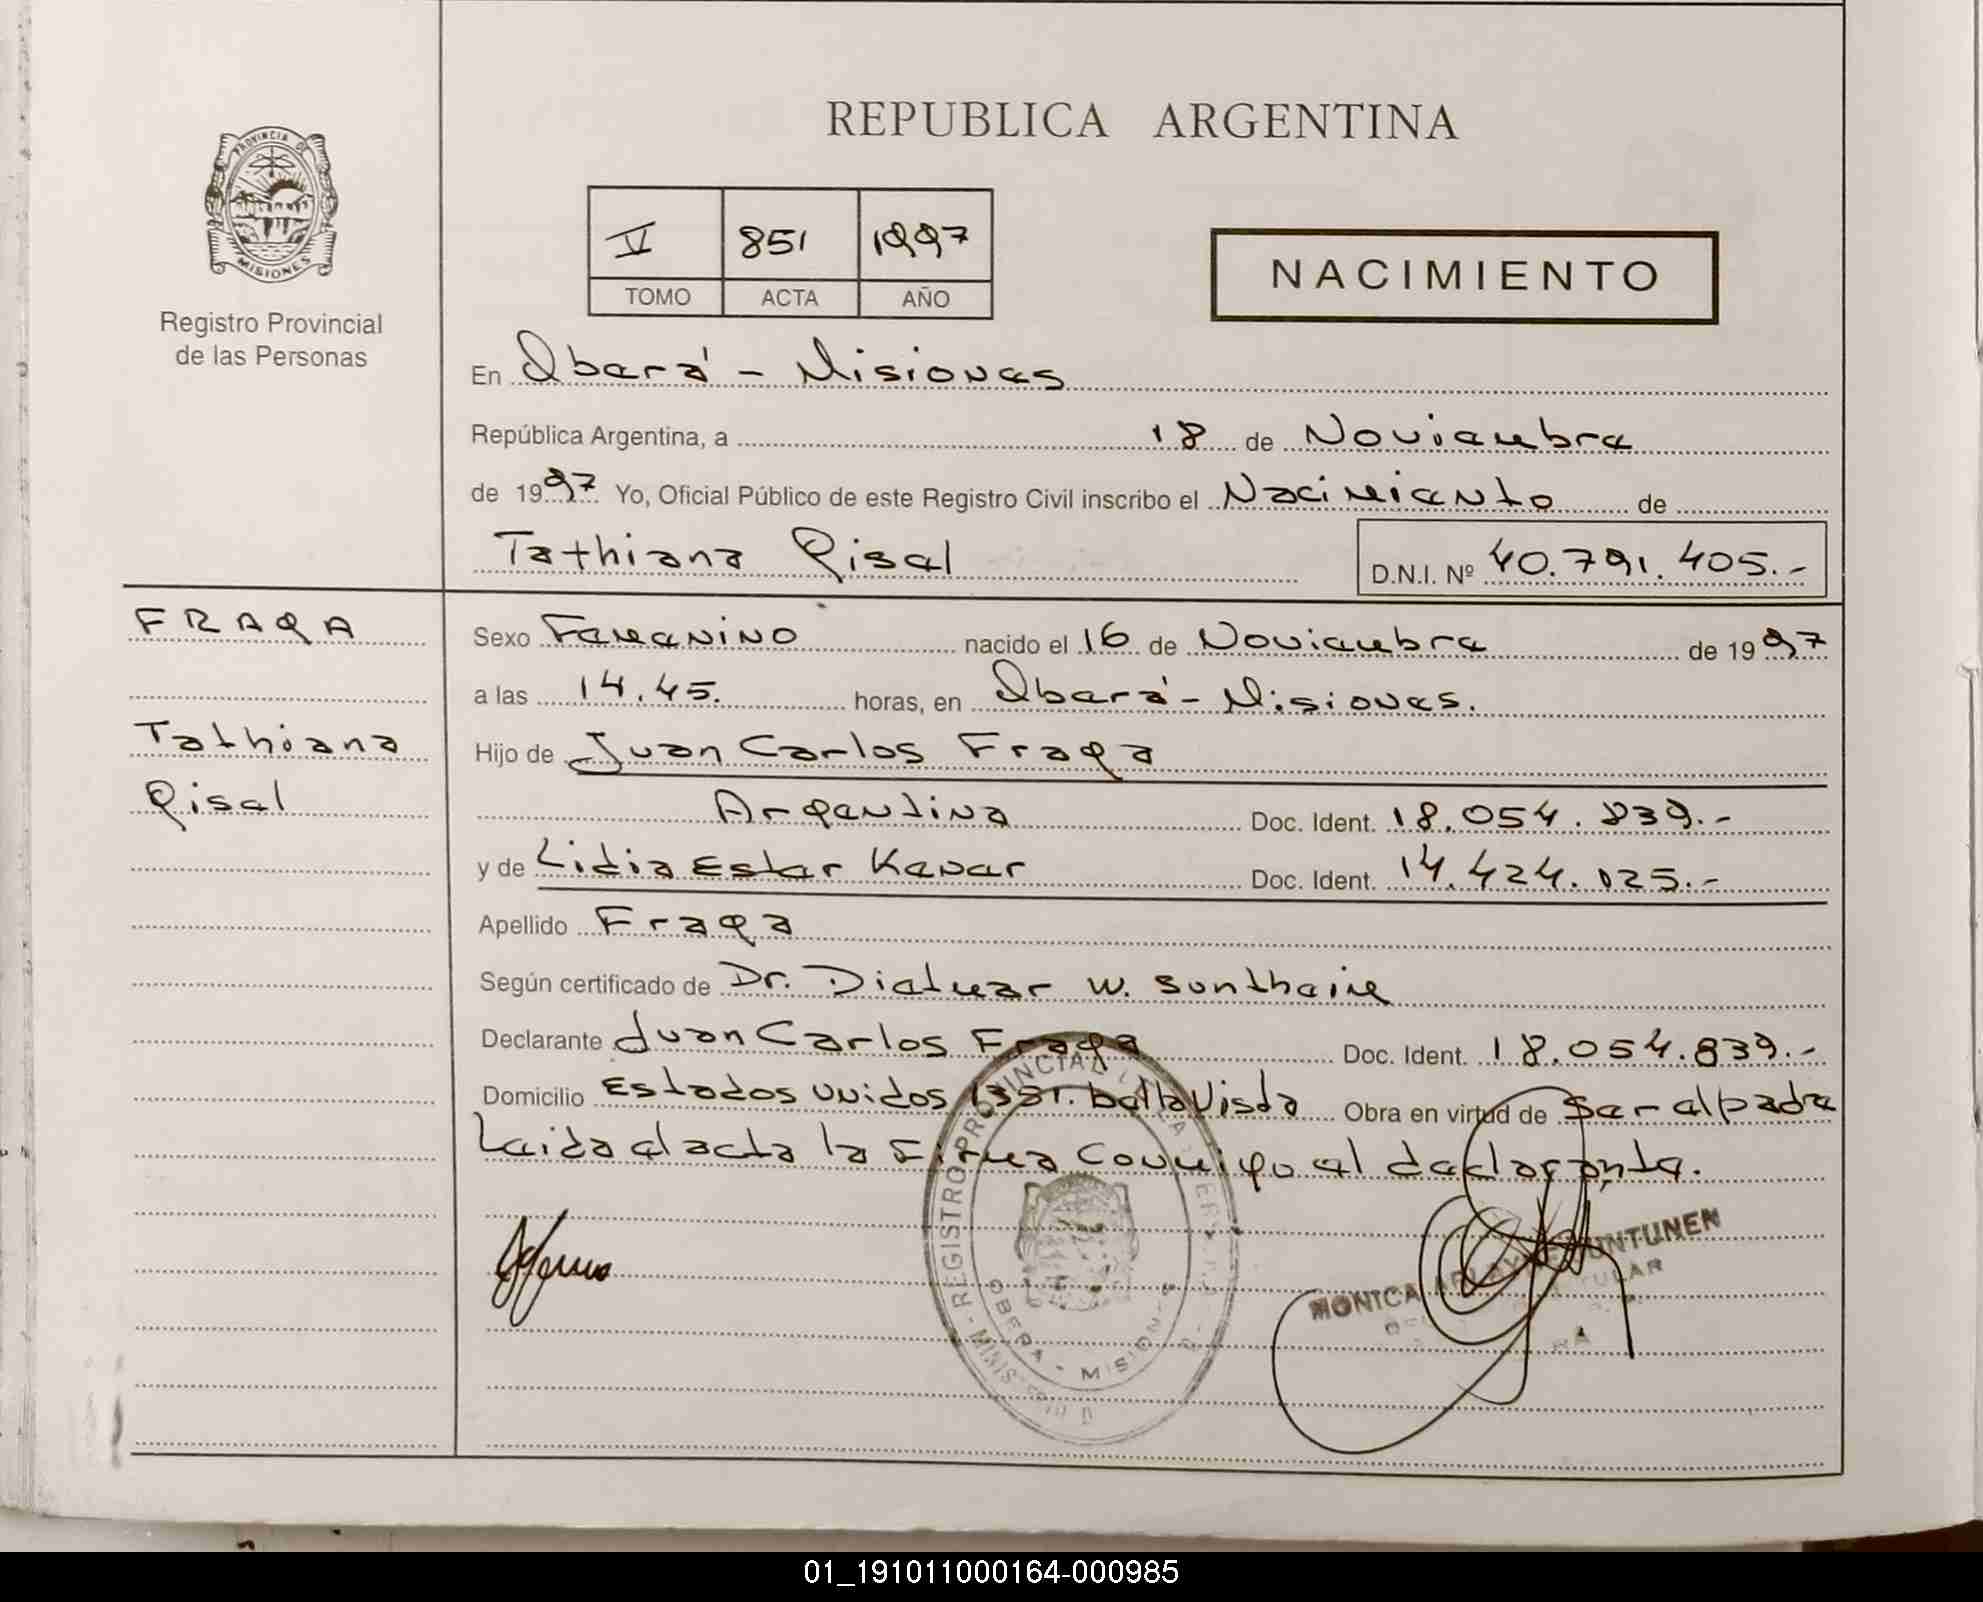 REPUBLICA ARGENTINA
PROVINCIA DE
MISIONES
Registro Provincial
de las Personas
V 851 1997
TOMO ACTA AÑO
NACIMIENTO
En Oberá - Misiones
República Argentina, a 18 de Noviembre
de 1997 Yo, Oficial Público de este Registro Civil inscribo el Nacimiento de
Tathiana Gisel
D.N.I. Nº 40.791.405.-
FRAGA
Tathiana
Gisel
Sexo Femenino nacido el 16 de Noviembre de 1997
a las 14.45. horas, en Oberá - Misiones.
Hijo de Juan Carlos Fraga
Argentina Doc. Ident. 18.054.839.-
y de Lidia Ester Kener Doc. Ident. 14.424.025.-
Apellido Fraga
Según certificado de Dr. Dietmar W. Sontheim
Declarante Juan Carlos Fraga Doc. Ident. 18.054.839.-
Domicilio Estados Unidos 1351. bella Vista Obra en virtud de Ser el padre
Leida el acta la Firma Conmigo el declarante.
REGISTRO PROVINCIAL
OBERA - MISIONES
MONICA UNTUNEN
TULAR
01_191011000164-000985